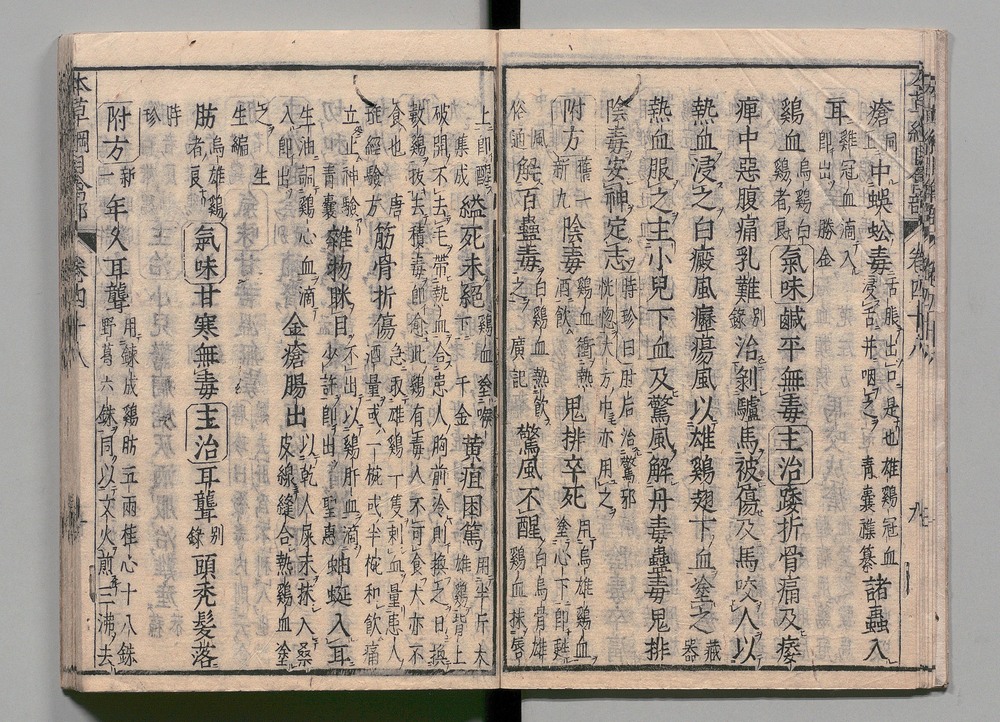 瘡洞血中蜈蚣毒舌脹出口是也雄鷄冠血浸舌并咽之青囊雜纂諸蟲入
耳雞冠血滴入即出勝金
鷄血烏鷄白鷄者良氣味鹹平無毒主治踒折骨痛及痿
痺中惡腹痛乳難別錄治剝驢馬被傷及馬咬人以
熱血浸之白癜風癧瘍風以雄鷄翅下血塗之藏器
熱血服之主小兒下血及驚風解丹毒蠱毒鬼排
陰毒安神定志時珍曰肘后治驚邪恍惚大方中亦用之
附方舊一新九陰毒鷄血衝熱酒飲鬼排卒死用烏雄鷄血塗心下即甦
風俗通解百蠱毒白鷄血熱飲之廣記驚風不醒白烏骨雄鷄血抹唇
上即醒集成縊死未絕鷄血塗喉下千金黃疸困篤用半斤大雄鷄背上
破開不去毛帶熱血合患人胸前冷則換之日換
數鷄拔去積毒即愈此鷄有毒人不可食犬亦不
食也唐瑤經驗方筋骨折傷急取雄鷄一隻刺血量患人
酒量或一椀或半椀和飲痛立止神驗青囊雜物眯目不出以鷄肝血滴少許即出聖惠蚰蜒入耳
生油調鷄心血滴入即出金瘡腸出以乾人屎末抹入桑皮線縫合熱鷄血塗
之生生編
肪烏雄鷄者良氣味甘寒無毒主治耳聾別錄頭禿髮落
時珍
附方新一年久耳聾用鍊成鷄肪五兩桂心十八銖野葛六銖同以文火煎三沸去
本草綱目禽部
卷四十八
本草綱目禽部
卷四十八
九